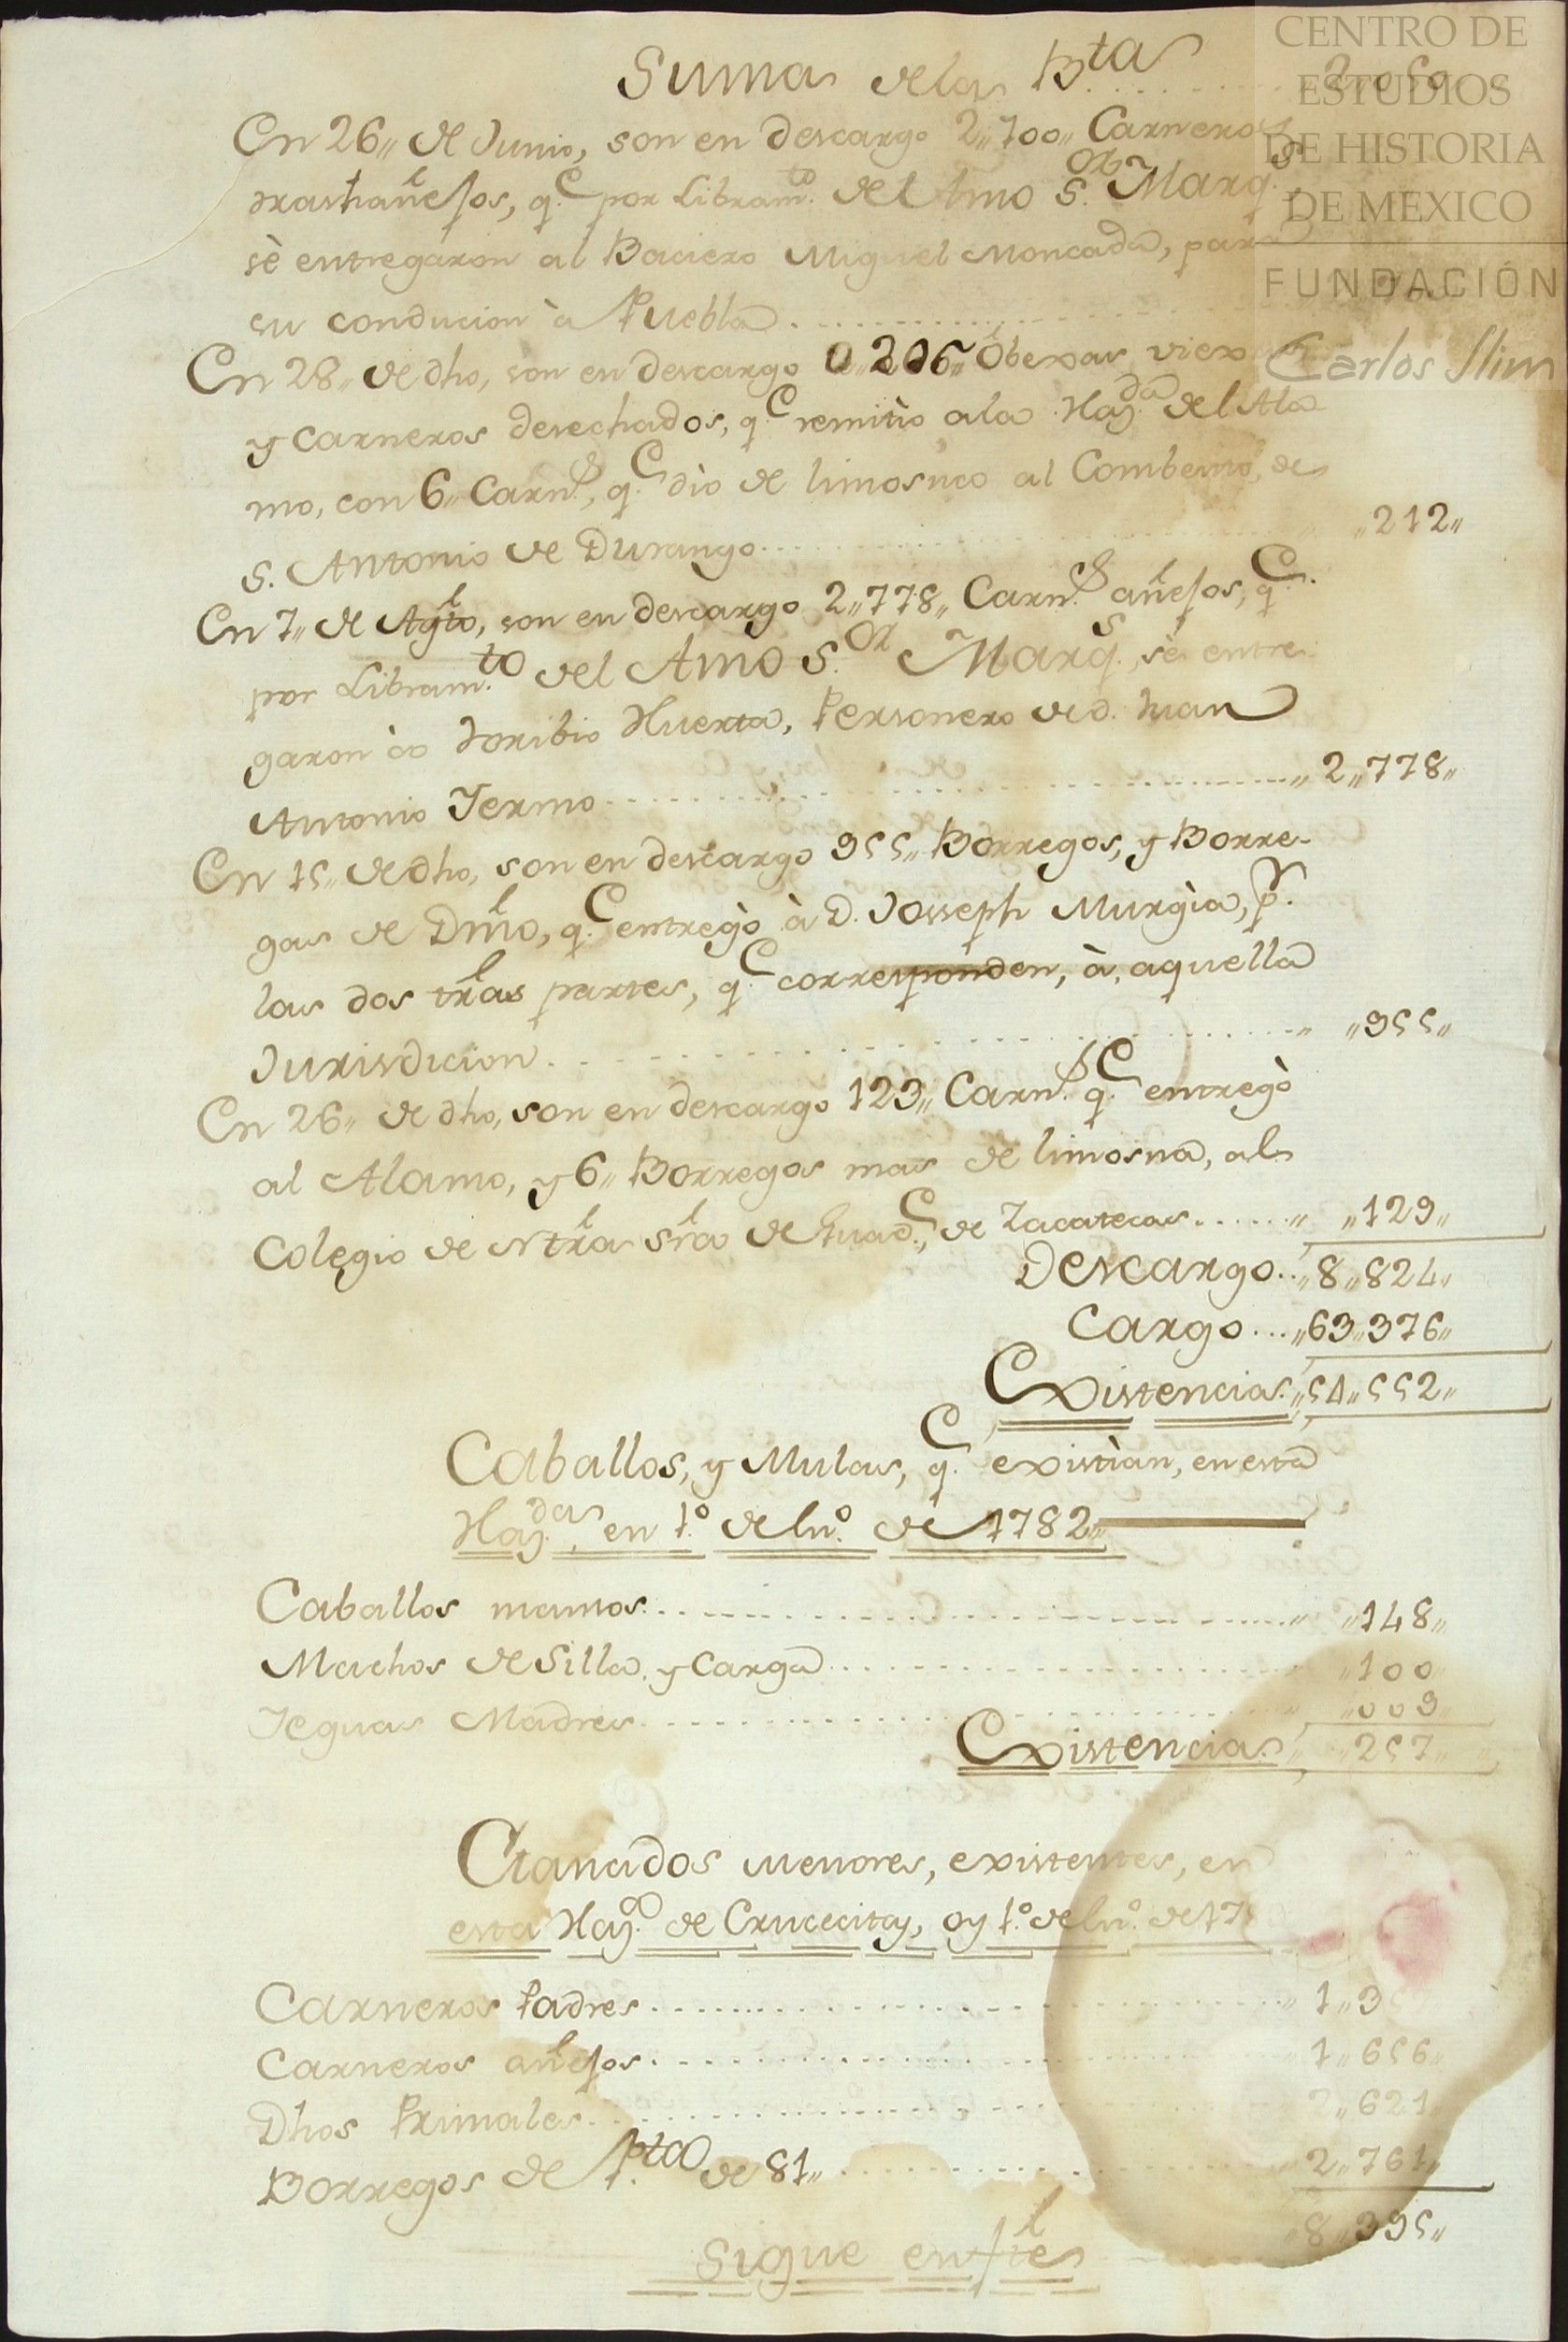 CENTRO DE
ESTUDIOS
DE HISTORIA
DE MEXICO
FUNDACIÓN
Carlos Slim
Suma de la Bta
En 26,, de Junio, son en descargo 2,,700,, Carneros
trashañejos, q.e por Libram.to del Amo S.or Marq.s
sè entregaron al Baciero Miguel Moncada, para
su conducion à Puebla
En 28,, de dho, son en descargo 0,,206,, Obexas viexas
y Carneros desechados, q.e remitio a la Haz.da del Ala
mo, con 6,, Carn.s, q.e diò de limosna al Combento, de
S. Antonio de Durango ,,212,,
En 7,, de Agto, son en descargo 2,,778,, Carn.s añejos, q.e
por Libram.to del Amo S.or Marq.s, sè entre
garon à Toribio Huerta, Personero de d. Juan
Antonio Yermo ,,2,,778,,
En 15,, de dho, son en descargo 955,, Borregos, y Borre-
gas de Dmo, q.e entregò à D. Josseph Murgìa, p.r
las dos tras partes, q.e corresponden, à, aquella
Jurisdicion ,,955,,
En 26,, de dho, son en descargo 123,, Carn.s q.e entregò
al Alamo, y 6,, Borregos mas de limosna, al
Colegio de Ntra Sra de Guad.e, de Zacatecas ,,129,,
Descargo ,,8,,824,,
Cargo ,,63,,376,,
Existencias ,,54,,552,,
Caballos, y Mulas, q.e existìan, en esta
Haz.da, en 1.o de En.o de 1782,,
Caballos mansos ,,148,,
Machos de Silla, y Carga ,,100
Yeguas Madres ,,009,,
Existencias ,,257,,
Ganados menores, existentes, en
esta Haz.da de Crucecitas, oy 1.o de En.o de 17
Carneros Padres 1,,3
Carneros añejos 1,,656,,
Dhos Primales 2,,621,,
Borregos de Ag.to de 81,, 2,,761,,
,,8,,395,,
Sigue enfte